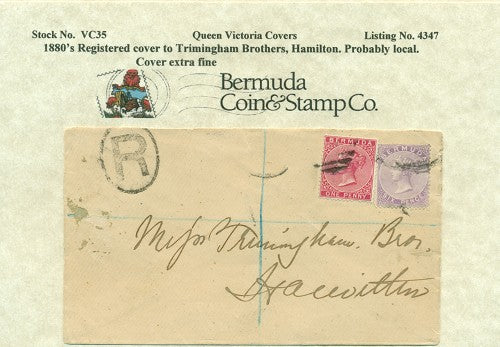 Stock No. VC35 Queen Victoria Covers Listing No. 4347
1880's Registered cover to Trimingham Brothers, Hamilton. Probably local.
Cover extra fine
Bermuda
Coin&Stamp Co.
R
BERMUDA
ONE PENNY
BERMUDA
SIX PENCE
Messrs Trimingham Bros.
Hamilton